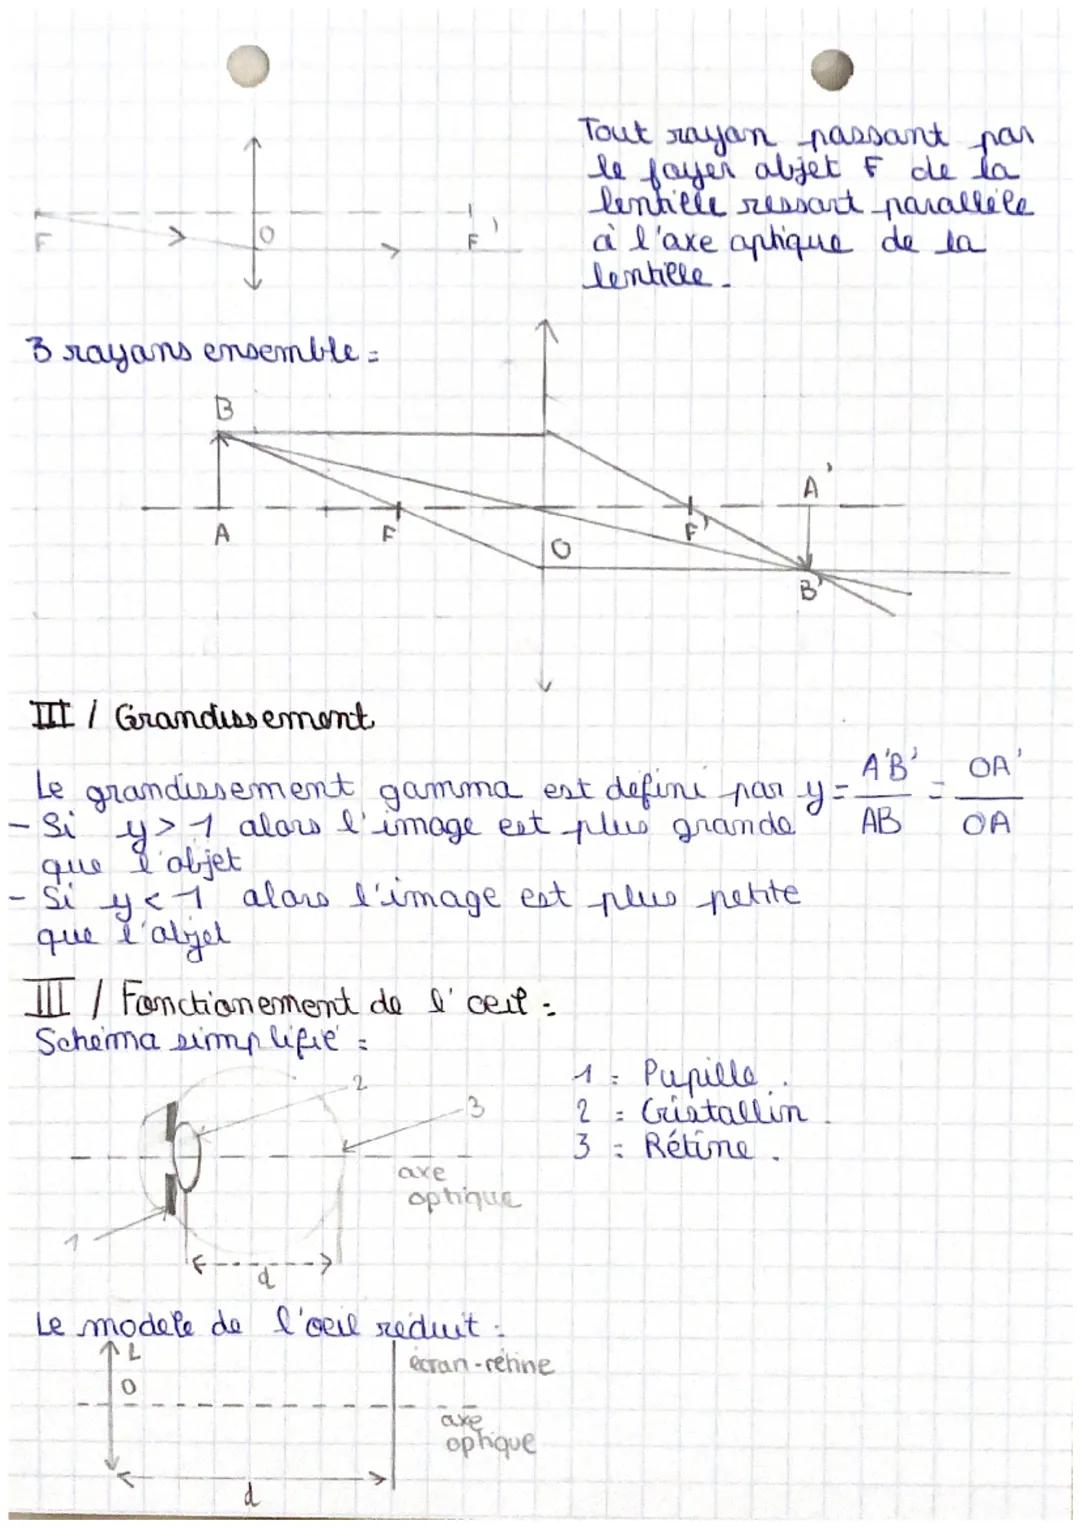 Tout rayon passant par
le foyer objet F de la
lentille ressort parallèle
à l'axe optique de la
lentille.
F
O
F'
3 rayons ensemble :
B
A
F
O
F'
A'
B'
III / Grandissement
Le grandissement gamma est défini par y = A'B' / AB = OA' / OA
- Si y > 1 alors l'image est plus grande
que l'objet
- Si y < 1 alors l'image est plus petite
que l'objet
III / Fonctionement de l'oeil :
Schéma simplifié :
1 : Pupille.
2 : Cristallin.
3 : Rétine.
2
3
axe
optique
1
d
Le modele de l'oeil réduit :
L
O
écran-rétine
axe
optique
d